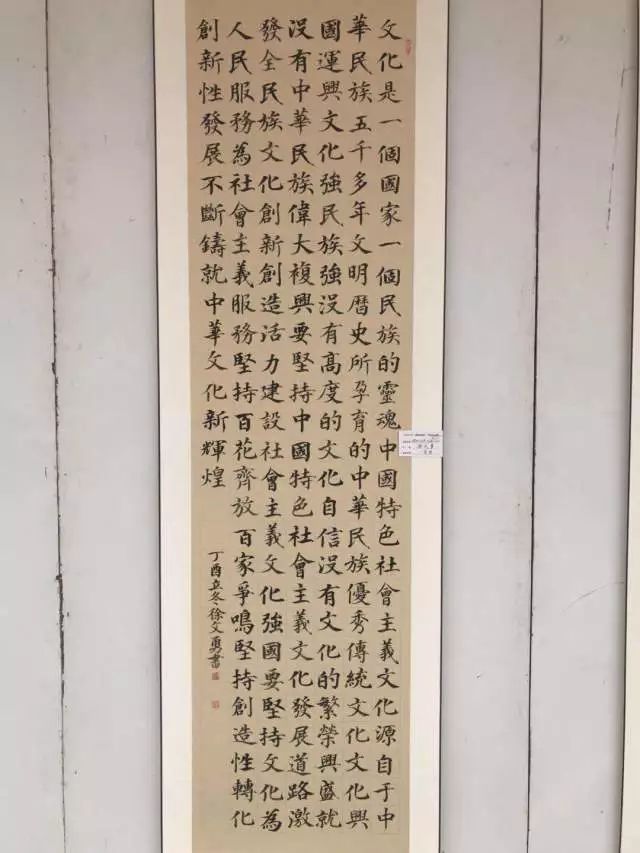 文化是一個國家一個民族的靈魂中國特色社會主義文化源自于中
華民族五千多年文明曆史所孕育的中華民族優秀傳統文化文化興
國運興文化強民族強沒有高度的文化自信沒有文化的繁榮興盛就
沒有中華民族偉大複興要堅持中國特色社會主義文化發展道路激
發全民族文化創新創造活力建設社會主義文化強國要堅持文化為
人民服務為社會主義服務堅持百花齊放百家爭鳴堅持創造性轉化
創新性發展不斷鑄就中華文化新輝煌
丁酉立冬徐文勇書